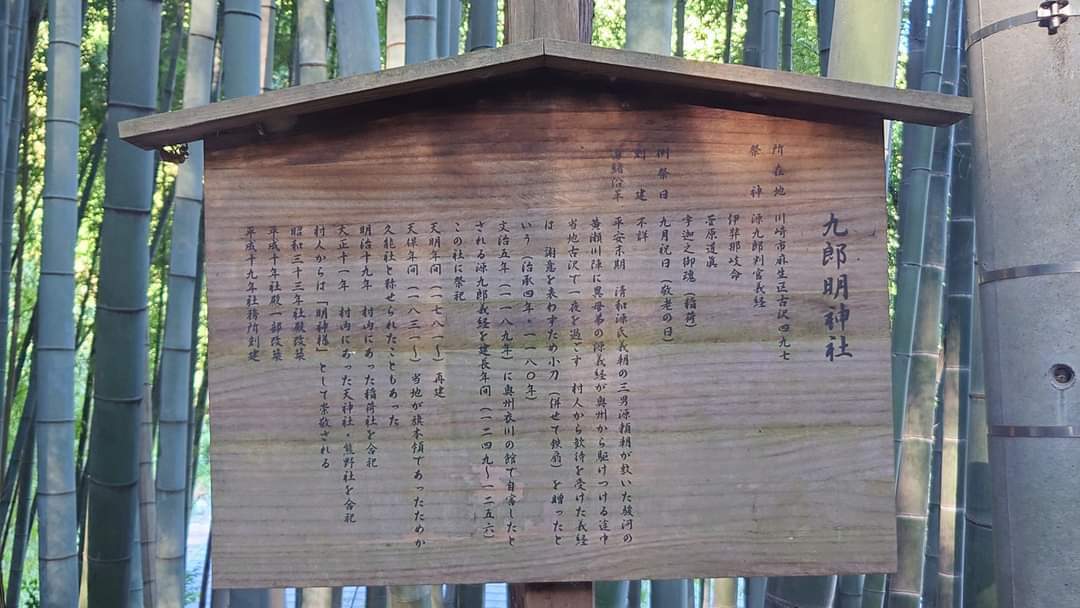 九郎明神社
所在地 川崎市麻生区古沢四九七
祭神 源九郎判官義経
伊弉那岐命
菅原道眞
宇迦之御魂(稲荷)
例祭日 九月祝日(敬老の日)
創建 不詳
由緒沿革 平安末期 清和源氏義朝の三男源頼朝が敷いた駿河の
黄瀬川陣に異母弟の源義経が奥州から駆けつける途中
当地古沢で一夜を過ごす 村人から歓待を受けた義経
は 謝意を表わすため小刀(併せて鉄扇)を贈ったと
いう(治承四年・一一八〇年)
文治五年(一一八九年)に奥州衣川の館で自害したと
される源九郎義経を建長年間(一二四九〜一二五六)
この社に祭祀
天明年間(一七八一〜)再建
天保年間(一八三一〜) 当地が旗本領であったためか
久能社と称せられたこともあった
明治十九年 村内にあった稲荷社を合祀
大正十一年 村内にあった天神社・熊野社を合祀
村人からは「明神様」として崇敬される
昭和三十三年社殿改装
平成十年社殿一部改装
平成十九年社務所創建